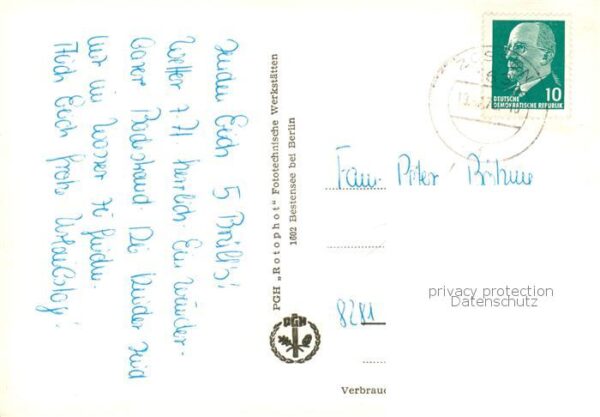 senden Euch 5 Brüll's!
Wetter z. Zt herrlich. Ein wunder-
barer Badestrand. Die Kinder sind
nur im Wasser zu finden.
Auch Euch frohe Urlaubstage!
PGH „Rotophot" Fototechnische Werkstätten
1602 Bestensee bei Berlin
PGH
DEUTSCHE
DEMOKRATISCHE REPUBLIK
10
Fam. Peter Böhme
privacy protection
Datenschutz
8281
Verbrauc